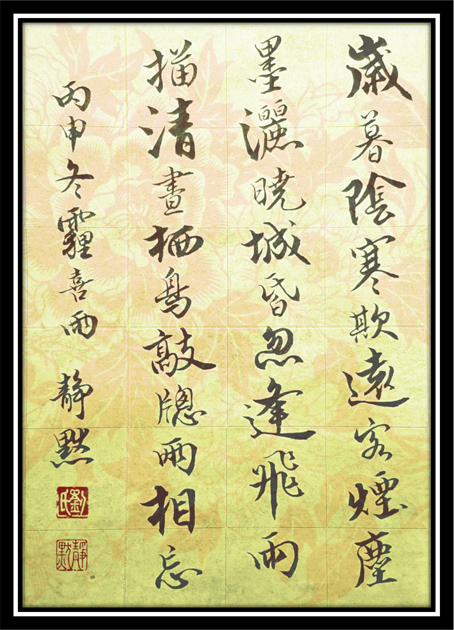 歲暮陰寒欺遠客煙塵
墨灑曉城昏忽逢飛雨
描清晝栖鳥敲牕兩相忘
丙申冬霾喜雨 靜默
劉氏
靜默